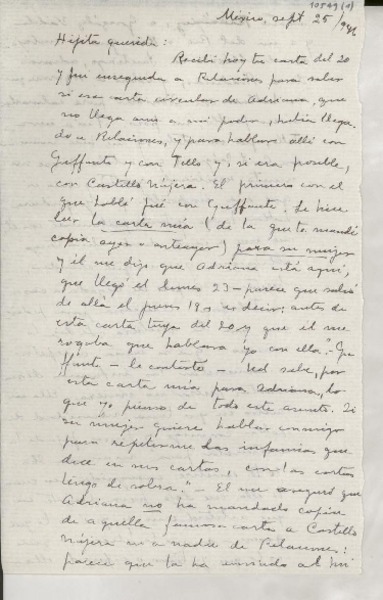 10579 (1)
México, sept 25/946
Hijita querida:
Recibí hoy tu carta del 20
y fui enseguida a Relaciones para saber
si esa carta circular de Adriana, que
no llega aún a mi poder, había llega-
do a Relaciones, y para hablar allí con
Guffanti y con Tello y, si era posible,
con Castillo Nájera. El primero con el
que hablé fué con Guffanti. Le hice
leer la carta mía (de la que te mandé
copia ayer o anteayer) para su mujer
y él me dijo que Adriana está aquí,
que llegó el lunes 23 - parece que salió
de allá el jueves 19, es decir: antes de
esta carta tuya del 20, y que él me
rogaba que hablara yo con ella". Gu-
ffanti - le contesté - Ud sabe, por
esta carta mía para Adriana, lo
que yo pienso de todo este asunto. Si
su mujer quiere hablar conmigo
para repetirme las infamias que
dice en sus cartas, con las cartas
tengo de sobra." - Él me aseguró que
Adriana no ha mandado copia
de aquella famosa carta a Castillo
Nájera ni a nadie de Relaciones:
parece que la ha enviado a